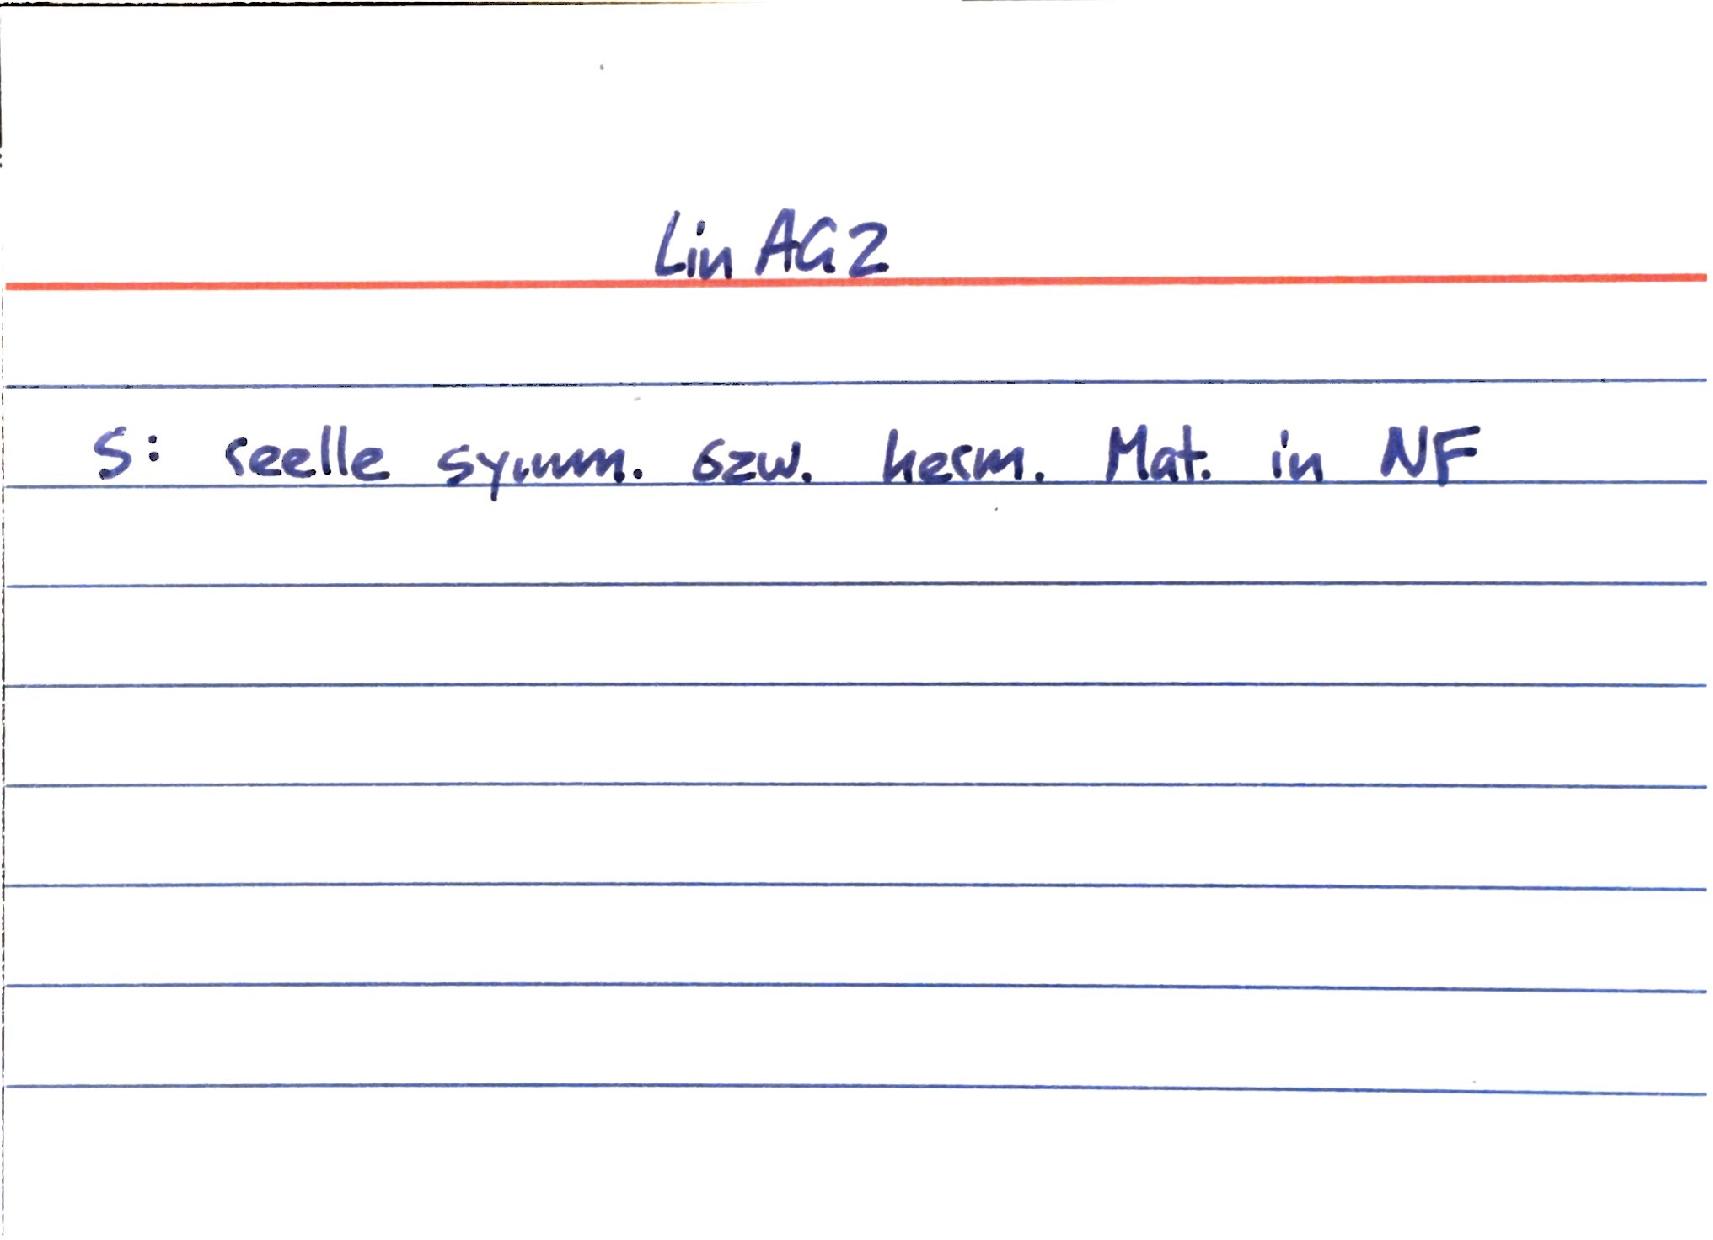 Lin AG 2
S: reelle symm. bzw. herm. Mat. in NF